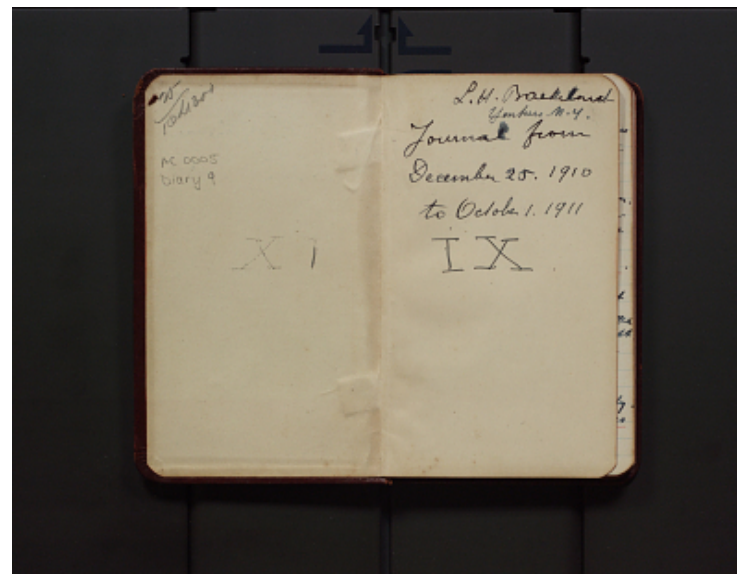 AC 0005
Diary 9
L. H. Baekeland
Yonkers N-Y.
Journal from
December 25. 1910
to October 1. 1911
IX